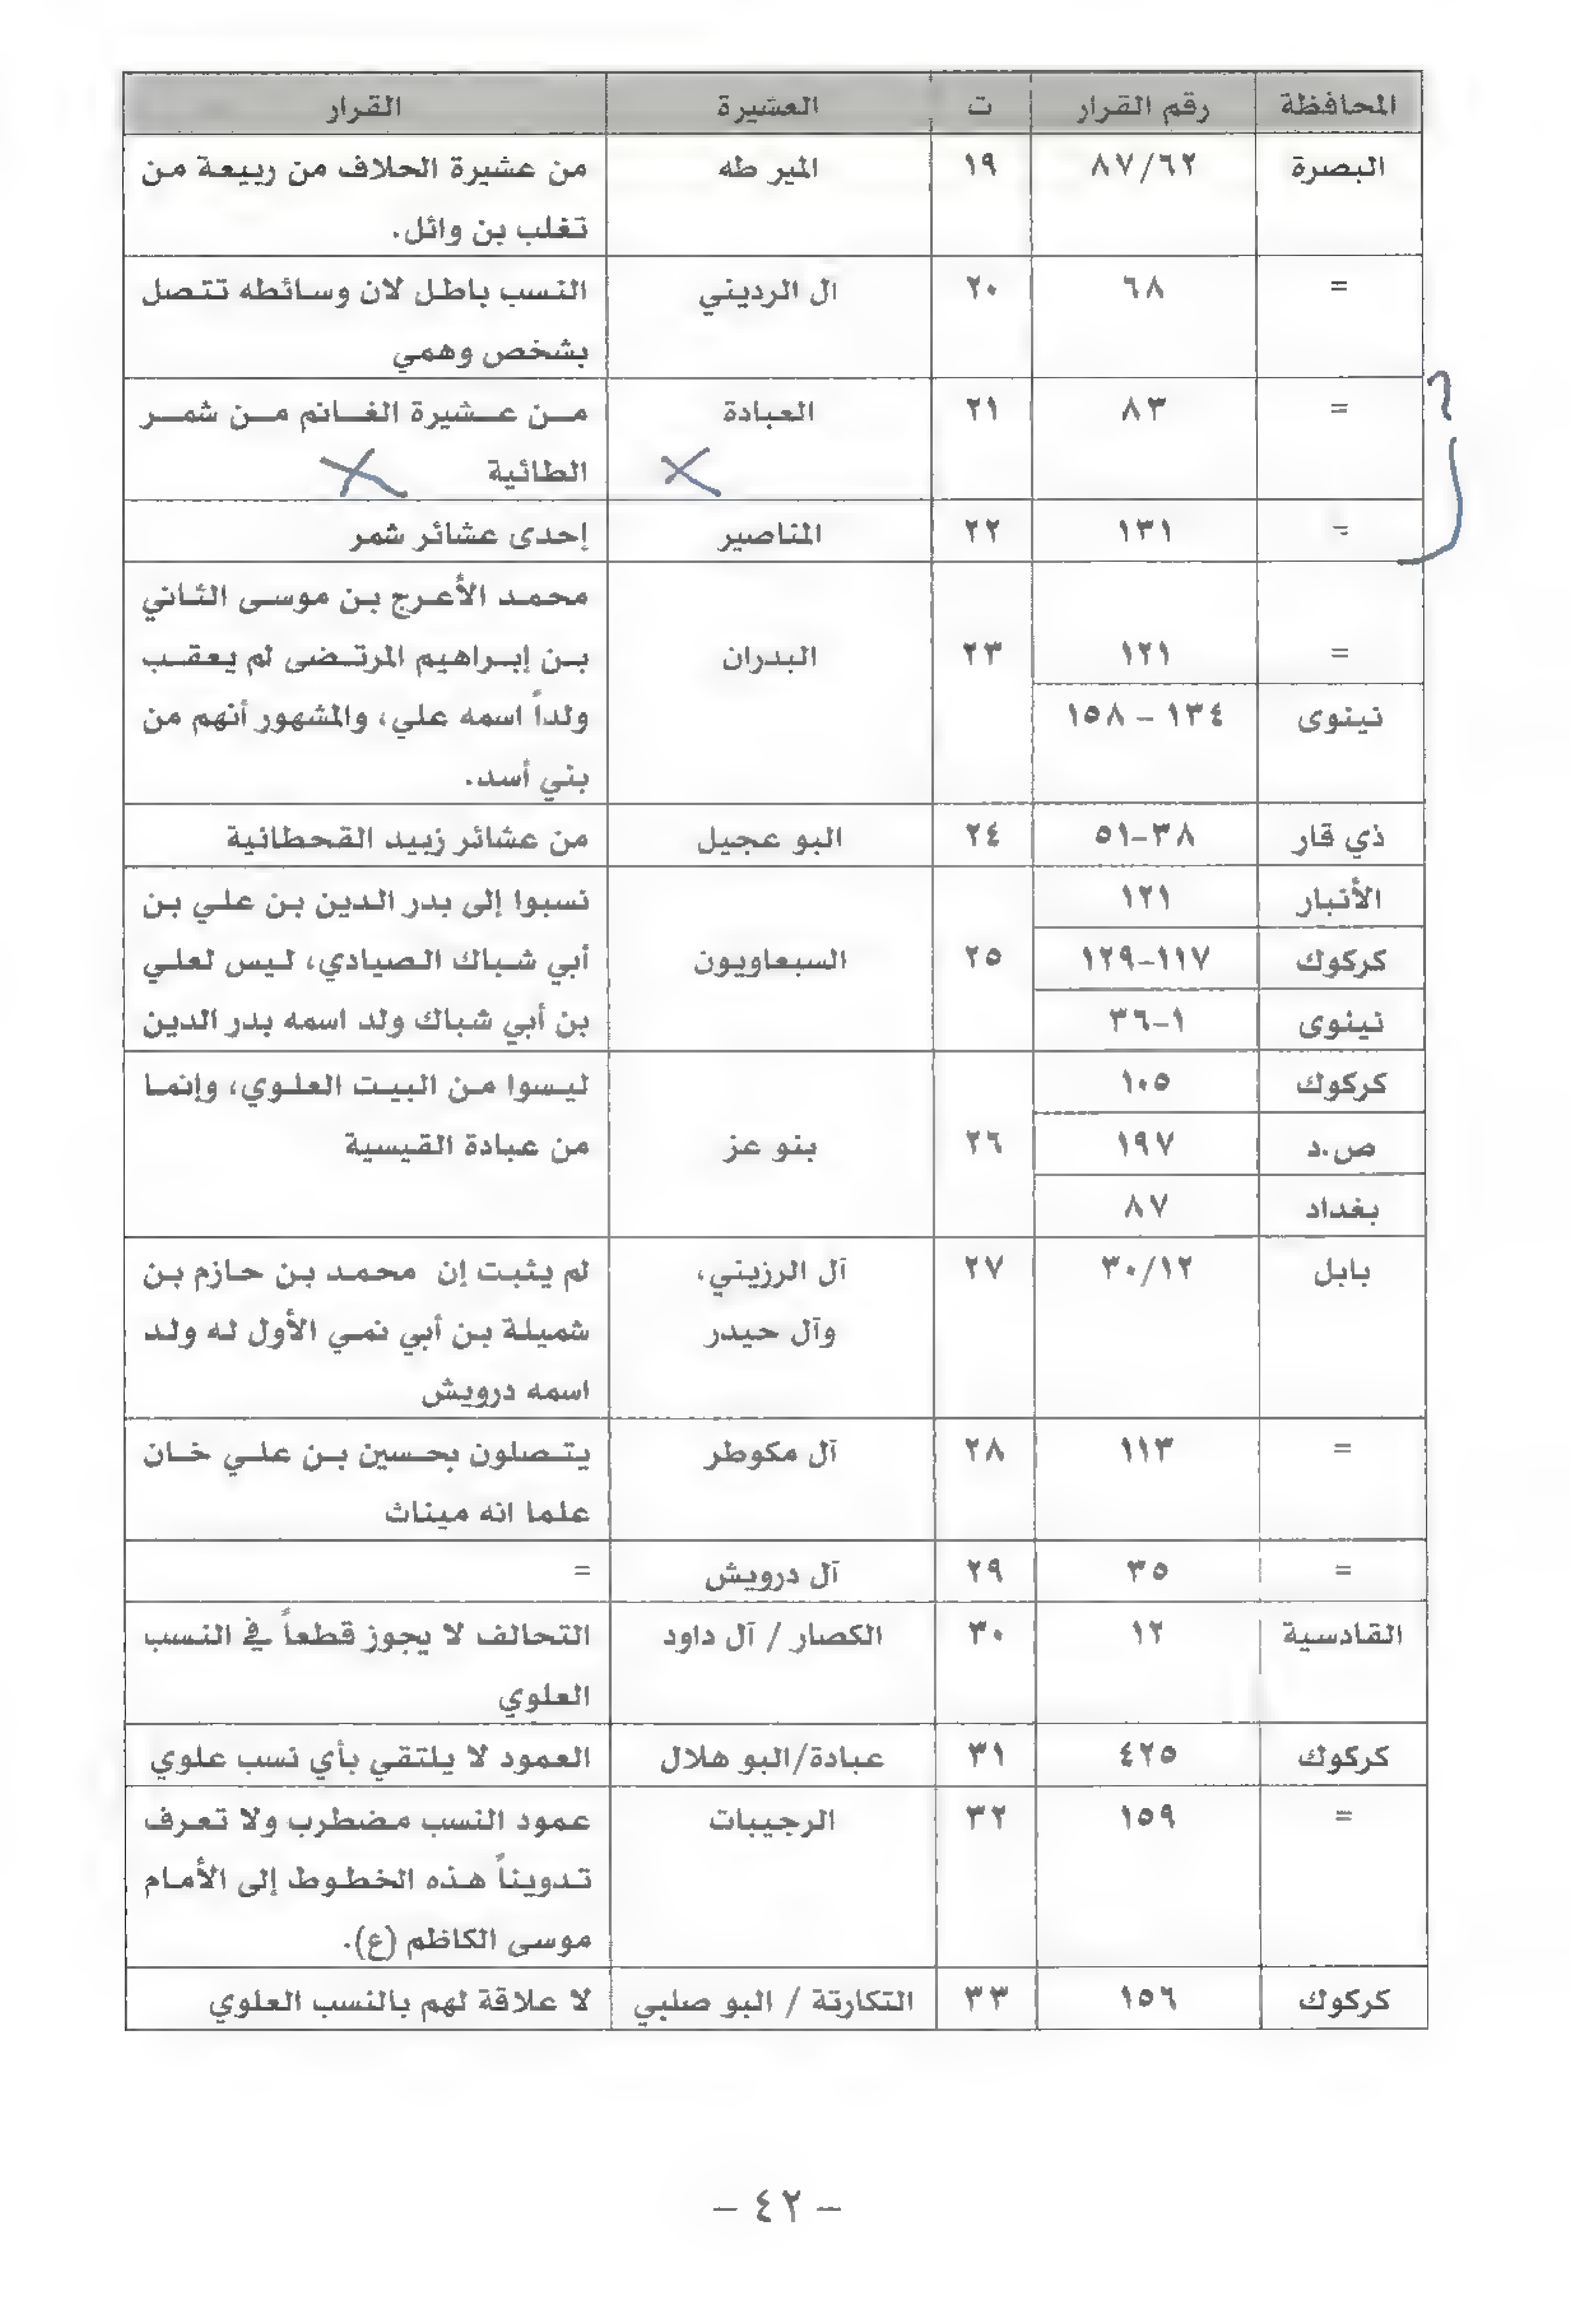 المحافظة رقم القرار ت العشيرة القرار
البصرة ٨٧/٦٢ ١٩ المير طه من عشيرة الحلاف من ربيعة من
تغلب بن وائل.
= ٦٨ ٢٠ ال الرديني النسب باطل لان وسائطه تتصل
بشخص وهمي
= ٨٣ ٢١ العبادة من عشيرة الغانم من شمر
الطائية
= ١٣١ ٢٢ المناصير إحدى عشائر شمر
محمد الأعرج بن موسى الثاني
= ١٢١ ٢٣ البدران بن إبراهيم المرتضى لم يعقب
نينوى ١٣٤ – ١٥٨ ولداً اسمه علي، والمشهور أنهم من
بني أسد.
ذي قار ٣٨-٥١ ٢٤ البو عجيل من عشائر زبيد القحطانية
الأنبار ١٢١ نسبوا إلى بدر الدين بن علي بن
كركوك ١١٧-١٢٩ ٢٥ السبعاويون أبي شباك الصيادي، ليس لعلي
نينوى ١-٣٦ بن أبي شباك ولد اسمه بدر الدين
كركوك ١٠٥ ليسوا من البيت العلوي، وإنما
ص.د ١٩٧ ٢٦ بنو عز من عبادة القيسية
بغداد ٨٧
بابل ٣٠/١٢ ٢٧ آل الرزيني، لم يثبت إن محمد بن حازم بن
وآل حيدر شميلة بن أبي نمي الأول له ولد
اسمه درويش
= ١١٣ ٢٨ آل مكوطر يتصلون بحسين بن علي خان
علما انه ميناث
= ٣٥ ٢٩ آل درويش =
القادسية ١٢ ٣٠ الكصار / آل داود التحالف لا يجوز قطعاً في النسب
العلوي
كركوك ٤٢٥ ٣١ عبادة/البو هلال العمود لا يلتقي بأي نسب علوي
= ١٥٩ ٣٢ الرجيبات عمود النسب مضطرب ولا تعرف
تدويناً هذه الخطوط إلى الأمام
موسى الكاظم (ع).
كركوك ١٥٦ ٣٣ التكارتة / البو صلبي لا علاقة لهم بالنسب العلوي
– ٤٢ –